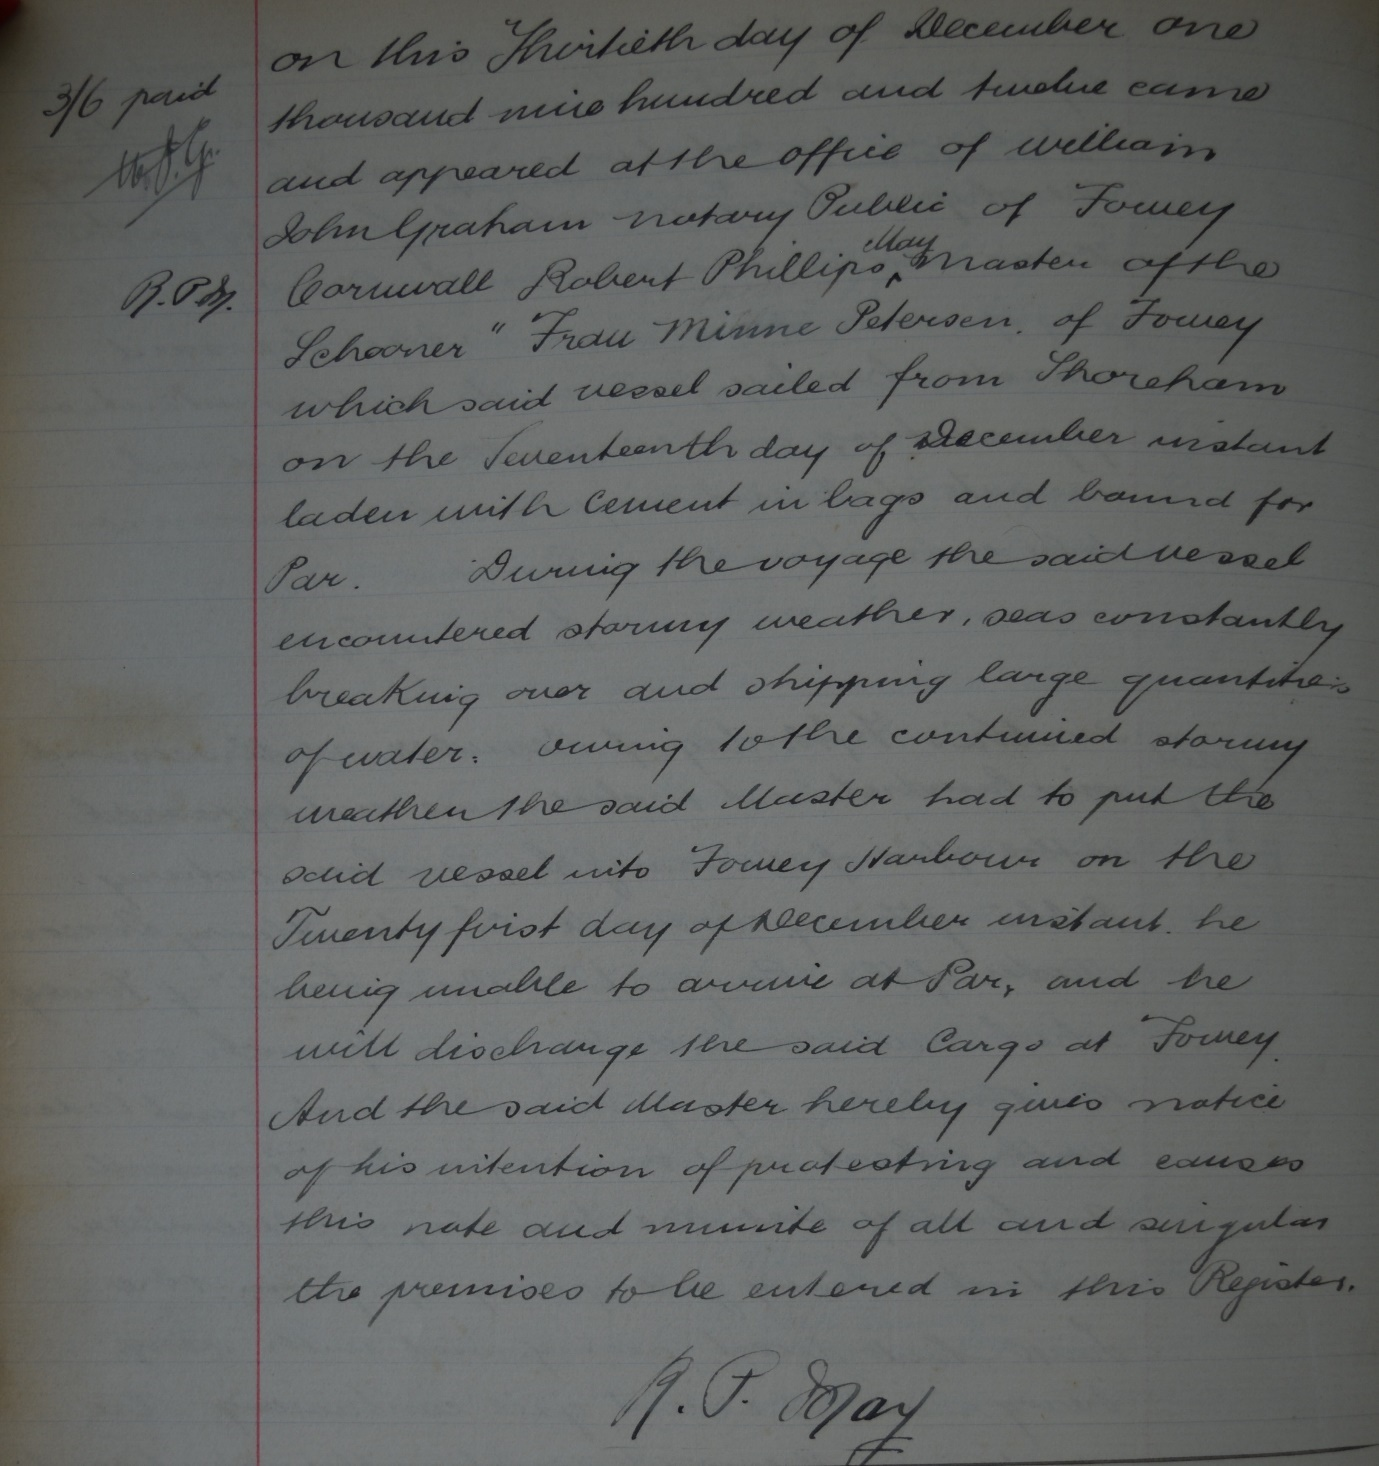 on this Thirtieth day of December one
3/6 paid
thousand nine hundred and twelve came
W.J.G.
and appeared at the office of William
John Graham notary Public of Fowey
May
R.P.M.
Cornwall Robert Phillips ‸ Master of the
Schooner " Frau Minne Petersen. of Fowey
which said vessel sailed from Shoreham
on the Seventeenth day of December instant
laden with Cement in bags and bound for
Par. During the voyage the said vessel
encountered stormy weather, seas constantly
breaking over and shipping large quantities
of water. owing to the continued stormy
weather the said Master had to put the
said vessel into Fowey Harbour on the
Twenty first day of December instant. he
being unable to arrive at Par, and he
will discharge the said Cargo at Fowey.
And the said Master hereby gives notice
of his intention of protesting and causes
this note and minute of all and singular
the premises to be entered in this Register.
R. P. May